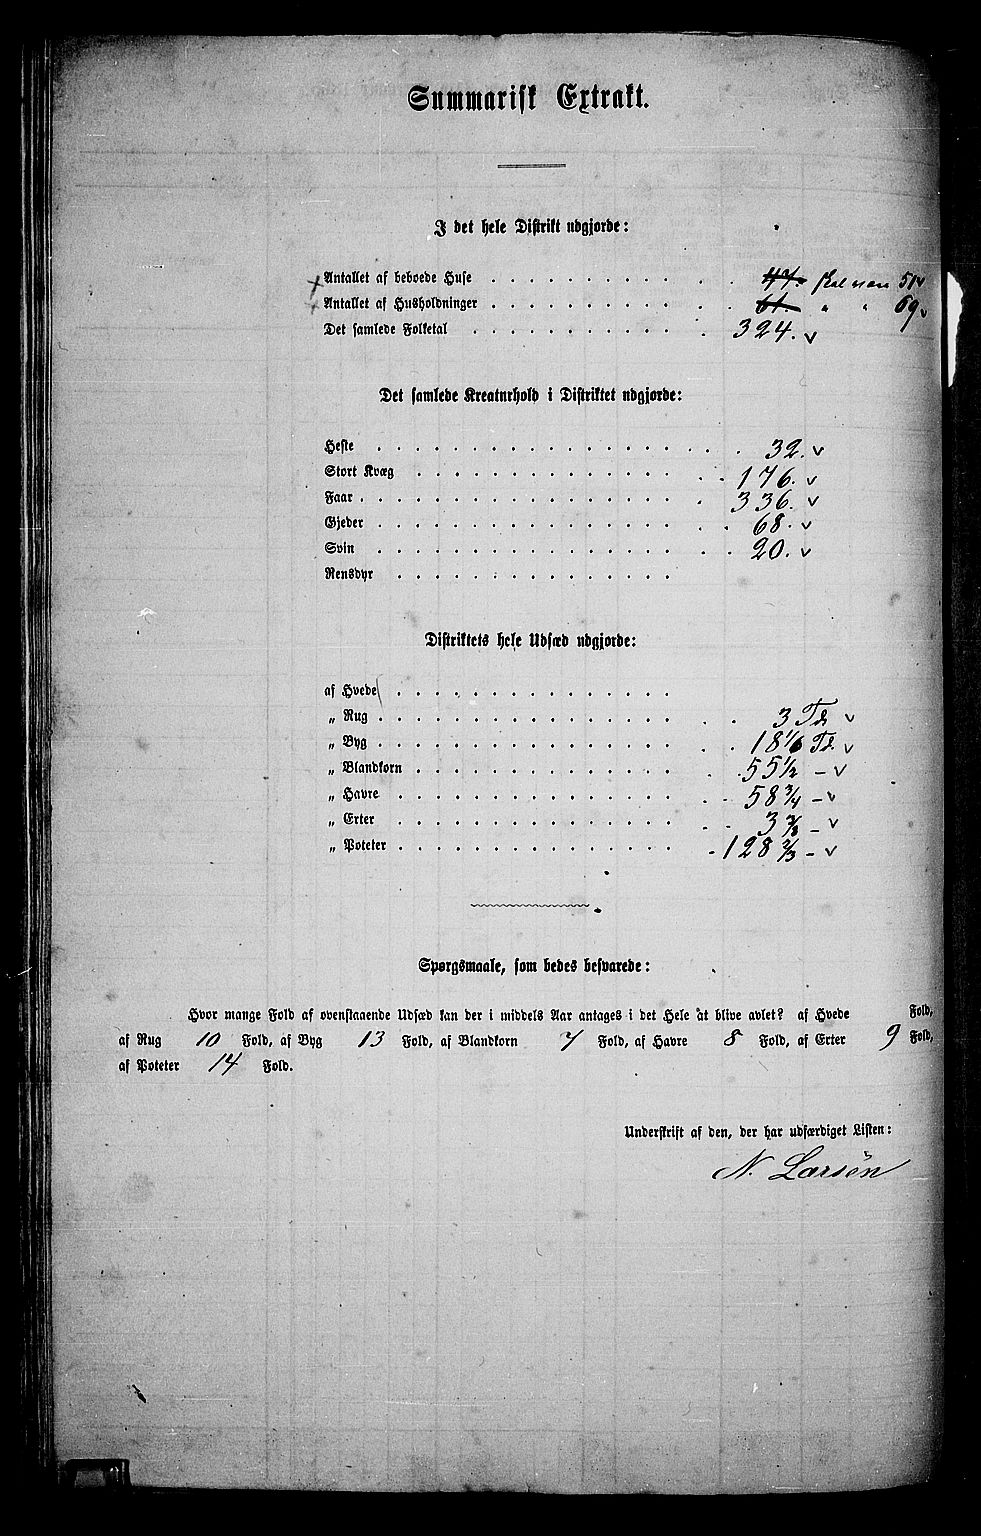 Summarisk Extrakt.
I det hele Distrikt udgjorde:
Antallet af beboede Huse 47. skal være 51
Antallet af Husholdninger 61. " " 69
Det samlede Folketal 324.
Det samlede Kreaturhold i Distriktet udgjorde:
Heste 32.
Stort Kvæg 176.
Faar 336.
Gjeder 68.
Svin 20.
Rensdyr
Distriktets hele Udsæd udgjorde:
af Hvede
„ Rug 3 Td.
„ Byg 18 1/6 Td.
„ Blandkorn 55 1/2 –
„ Havre 58 3/4 –
„ Erter 3 –
„ Poteter 128 2/3 –
Spørgsmaale, som bedes besvarede:
Hvor mange Fold af ovenstaaende Udsæd kan der i middels Aar antages i det Hele at blive avlet? af Hvede Fold,
af Rug 10 Fold, af Byg 13 Fold, af Blandkorn 7 Fold, af Havre 8 Fold, af Erter 9 Fold,
af Poteter 14 Fold.
Underskrift af den, der har udfærdiget Listen:
N. Larsen